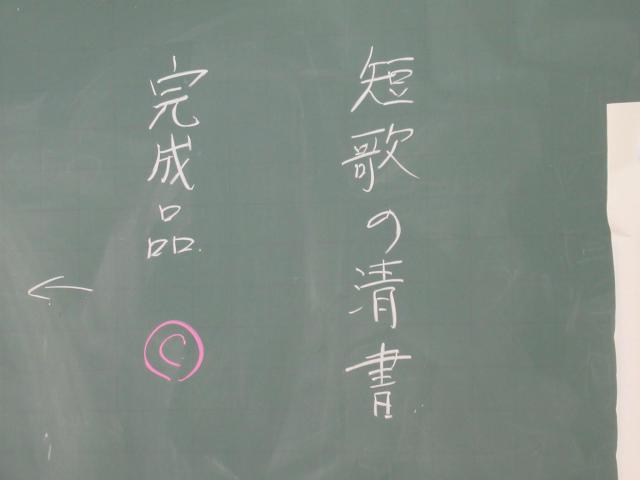 短歌の清書
完成品 Ⓒ